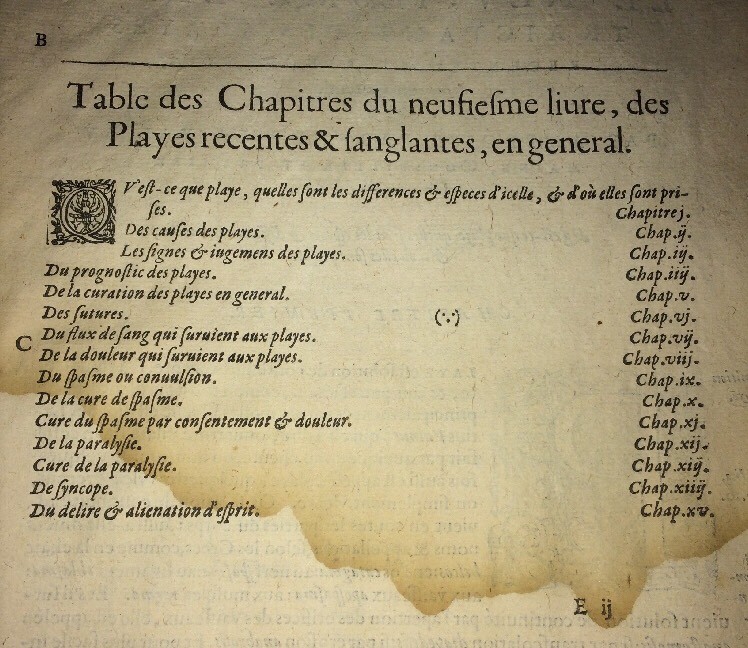 B
Table des Chapitres du neufieſme liure, des
Playes recentes & ſanglantes, en general.
QV'eſt-ce que playe, quelles ſont les differences & eſpeces d'icelle, & d'où elles ſont pri-
ſes. Chapitre j.
Des cauſes des playes. Chap.ij.
Les ſignes & iugemens des playes. Chap.iij.
Du prognoſtic des playes. Chap.iiij.
De la curation des playes en general. Chap.v.
Des ſutures. Chap.vj.
C Du flux de ſang qui ſuruient aux playes. Chap.vij.
De la douleur qui ſuruient aux playes. Chap.viij.
Du ſpaſme ou conuulſion. Chap.ix.
De la cure de ſpaſme. Chap.x.
Cure du ſpaſme par conſentement & douleur. Chap.xj.
De la paralyſie. Chap.xij.
Cure de la paralyſie. Chap.xiij.
De ſyncope. Chap.xiiij.
Du delire & alienation d'eſprit. Chap.xv.
E ij